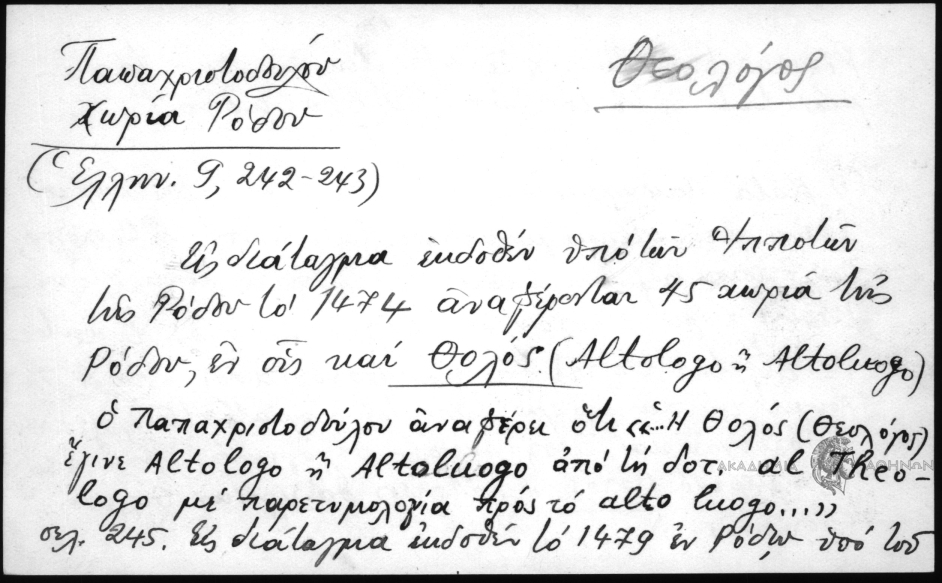 Παπαχριστοδούλου
Χωρία Ρόδου
(Ἑλλην. 9, 242-243)
Θεολόγος
Εἰς διάταγμα ἐκδοθέν ὑπό τῶν Ἱπποτῶν
τῆς Ρόδου τό 1474 ἀναφέρονται 45 χωριά τῆς
Ρόδου, ἐν οἷς καί Θολός (Altologo ἤ Altoluogo)
ὁ Παπαχριστοδούλου ἀναφέρει ὅτι «...Η Θολός (Θεολόγος)
ἔγινε Altologo ἤ Altoluogo ἀπό τή δοτ. al Theo-
logo μέ παρετυμολογία πρός τό alto luogo....»
σελ. 245. Εἰς διάταγμα ἐκδοθέν τό 1479 ἐν Ρόδῳ ὑπό τοῦ
ΑΚΑΔΗΜΙΑ ΑΘΗΝΩΝ